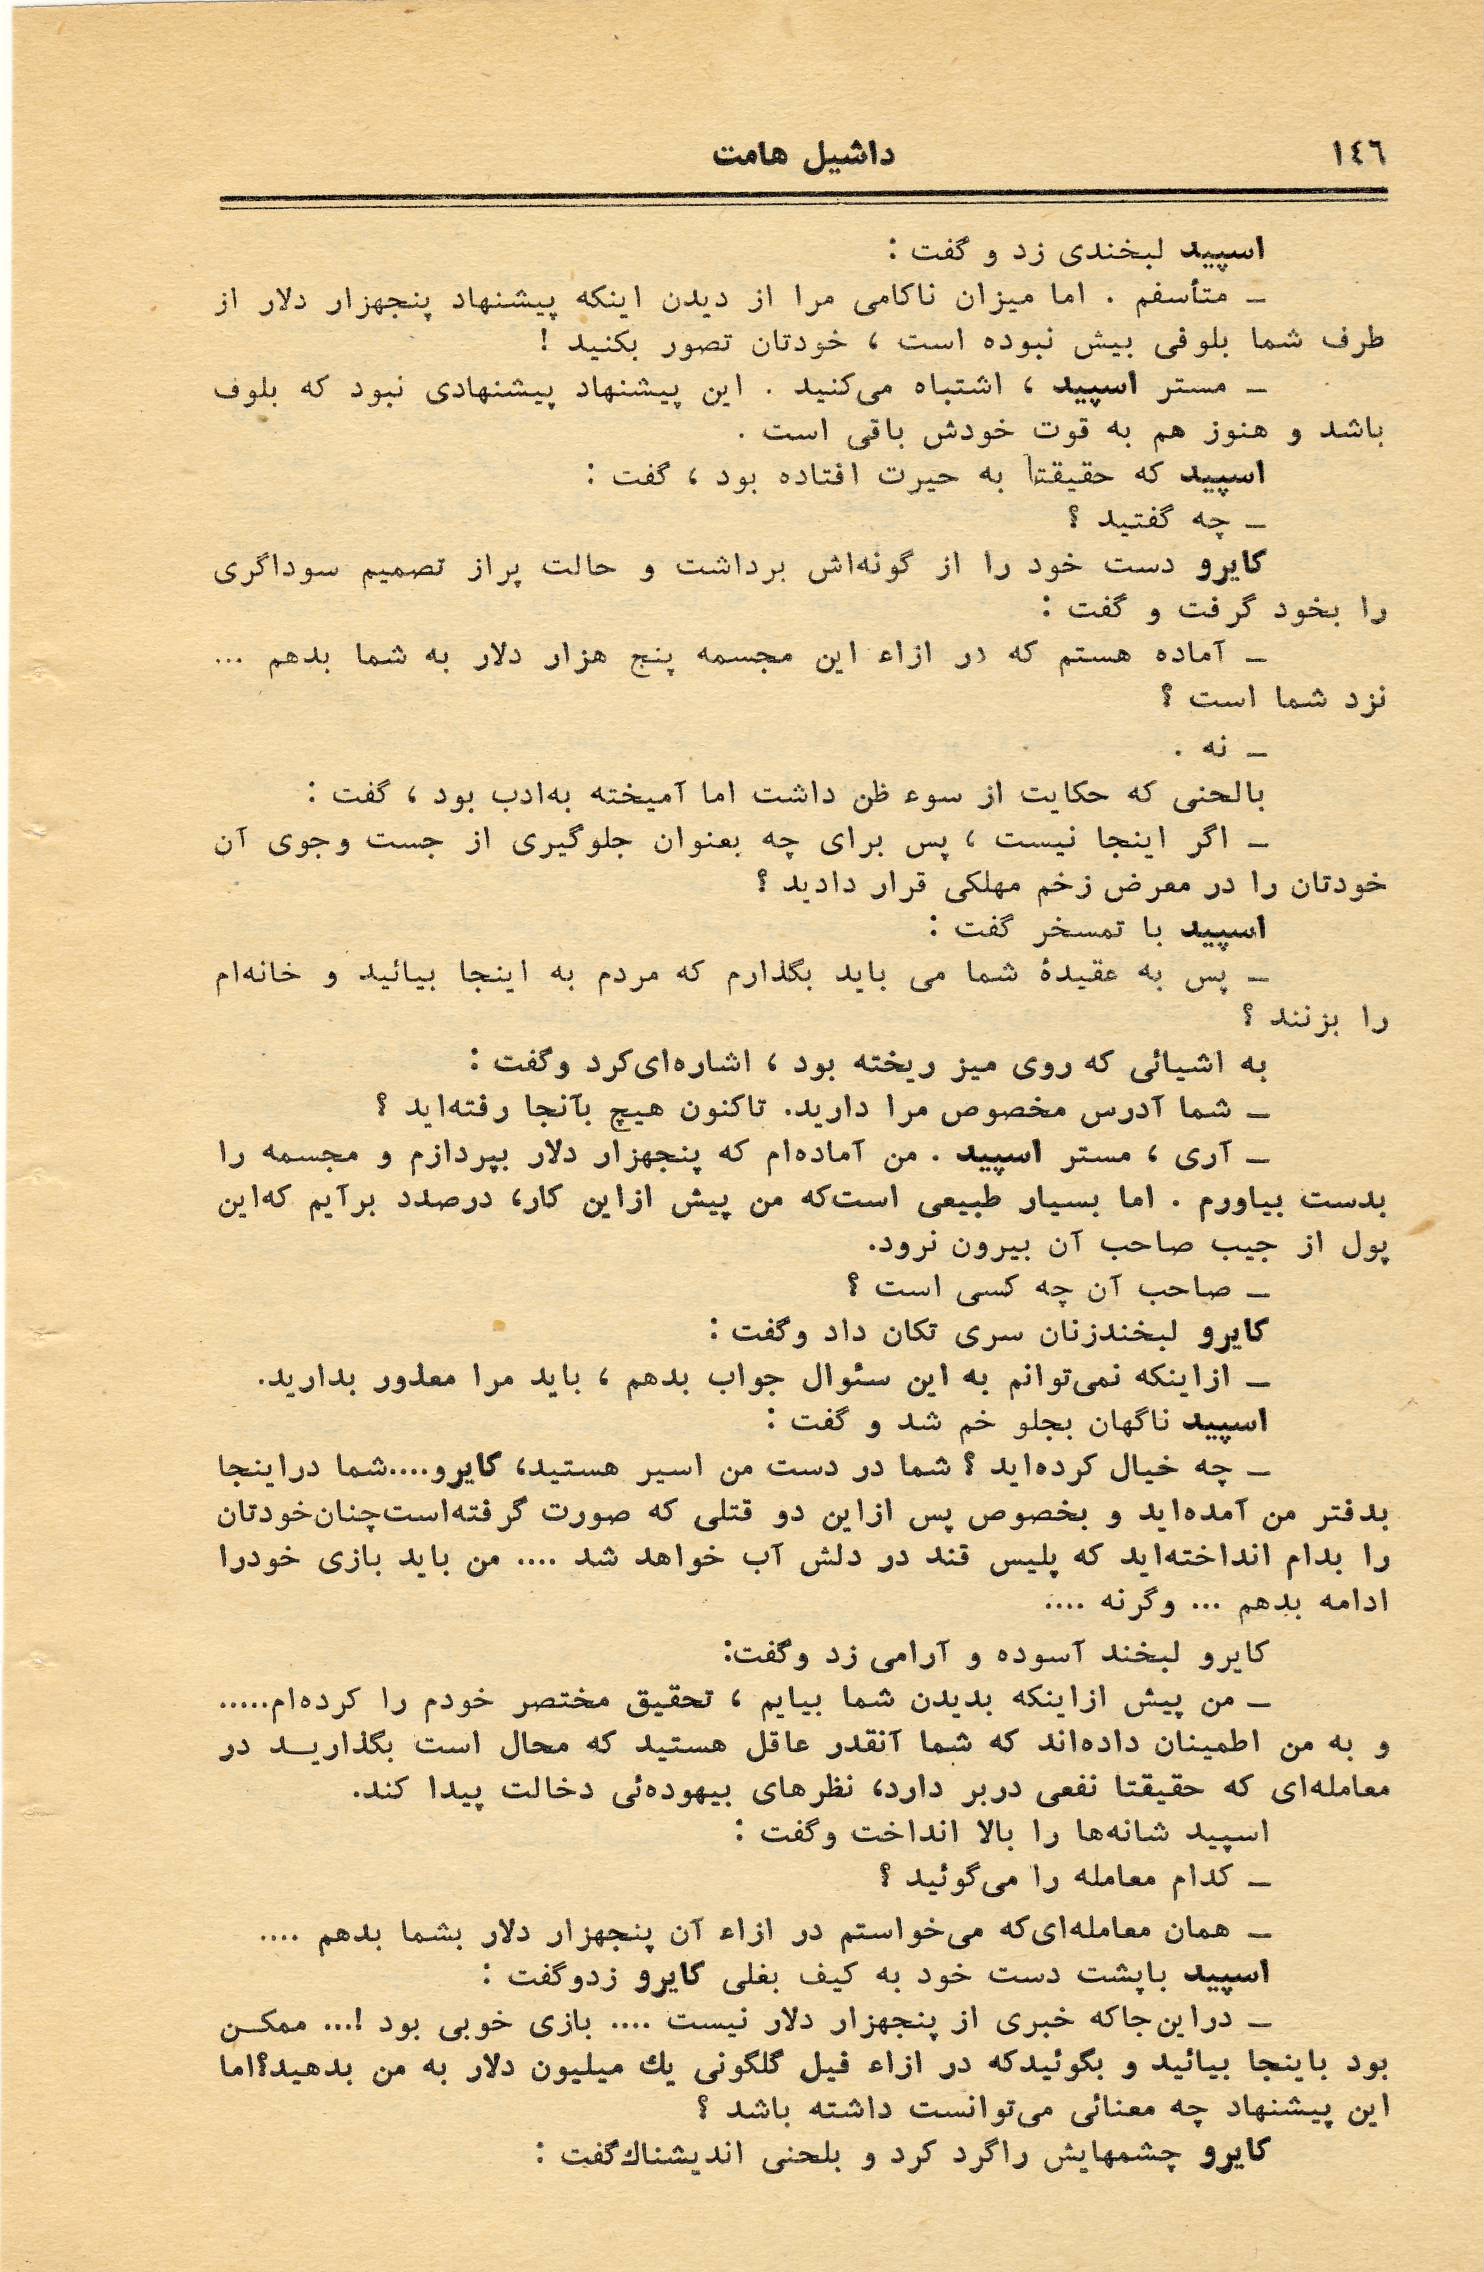 ١٤٦
داشیل هامت
اسپید لبخندی زد و گفت :
ـ متأسفم . اما میزان ناکامی مرا از دیدن اینکه پیشنهاد پنجهزار دلار از
طرف شما بلوفی بیش نبوده است ، خودتان تصور بکنید !
ـ مستر اسپید ، اشتباه می‌کنید . این پیشنهاد پیشنهادی نبود که بلوف
باشد و هنوز هم به قوت خودش باقی است .
اسپید که حقیقتاً به حیرت افتاده بود ، گفت :
ـ چه گفتید ؟
کایرو دست خود را از گونه‌اش برداشت و حالت پراز تصمیم سوداگری
را بخود گرفت و گفت :
ـ آماده هستم که در ازاء این مجسمه پنج هزار دلار به شما بدهم ...
نزد شما است ؟
ـ نه .
بالحنی که حکایت از سوء ظن داشت اما آمیخته به‌ادب بود ، گفت :
ـ اگر اینجا نیست ، پس برای چه بعنوان جلوگیری از جست وجوی آن
خودتان را در معرض زخم مهلکی قرار دادید ؟
اسپید با تمسخر گفت :
ـ پس به عقیدهٔ شما می باید بگذارم که مردم به اینجا بیائید و خانه‌ام
را بزنند ؟
به اشیائی که روی میز ریخته بود ، اشاره‌ای‌کرد وگفت :
ـ شما آدرس مخصوص مرا دارید. تاکنون هیچ بآنجا رفته‌اید ؟
ـ آری ، مستر اسپید . من آماده‌ام که پنجهزار دلار بپردازم و مجسمه را
بدست بیاورم . اما بسیار طبیعی است‌که من پیش ازاین کار، درصدد برآیم که‌این
پول از جیب صاحب آن بیرون نرود.
ـ صاحب آن چه کسی است ؟
کایرو لبخندزنان سری تکان داد وگفت :
ـ ازاینکه نمی‌توانم به این سئوال جواب بدهم ، باید مرا معذور بدارید.
اسپید ناگهان بجلو خم شد و گفت :
ـ چه خیال کرده‌اید ؟ شما در دست من اسیر هستید، کایرو....شما دراینجا
بدفتر من آمده‌اید و بخصوص پس ازاین دو قتلی که صورت گرفته‌است‌چنان‌خودتان
را بدام انداخته‌اید که پلیس قند در دلش آب خواهد شد .... من باید بازی خودرا
ادامه بدهم ... وگرنه ....
کایرو لبخند آسوده و آرامی زد وگفت:
ـ من پیش ازاینکه بدیدن شما بیایم ، تحقیق مختصر خودم را کرده‌ام.....
و به من اطمینان داده‌اند که شما آنقدر عاقل هستید که محال است بگذاریـد در
معامله‌ای که حقیقتا نفعی دربر دارد، نظرهای بیهوده‌ئی دخالت پیدا کند.
اسپید شانه‌ها را بالا انداخت وگفت :
ـ کدام معامله را می‌گوئید ؟
ـ همان معامله‌ای‌که می‌خواستم در ازاء آن پنجهزار دلار بشما بدهم ....
اسپید باپشت دست خود به کیف بغلی کایرو زدوگفت :
ـ دراین‌جاکه خبری از پنجهزار دلار نیست .... بازی خوبی بود !... ممکـن
بود باینجا بیائید و بگوئیدکه در ازاء فیل گلگونی یك میلیون دلار به من بدهید؟اما
این پیشنهاد چه معنائی می‌توانست داشته باشد ؟
کایرو چشمهایش راگرد کرد و بلحنی اندیشناك‌گفت :